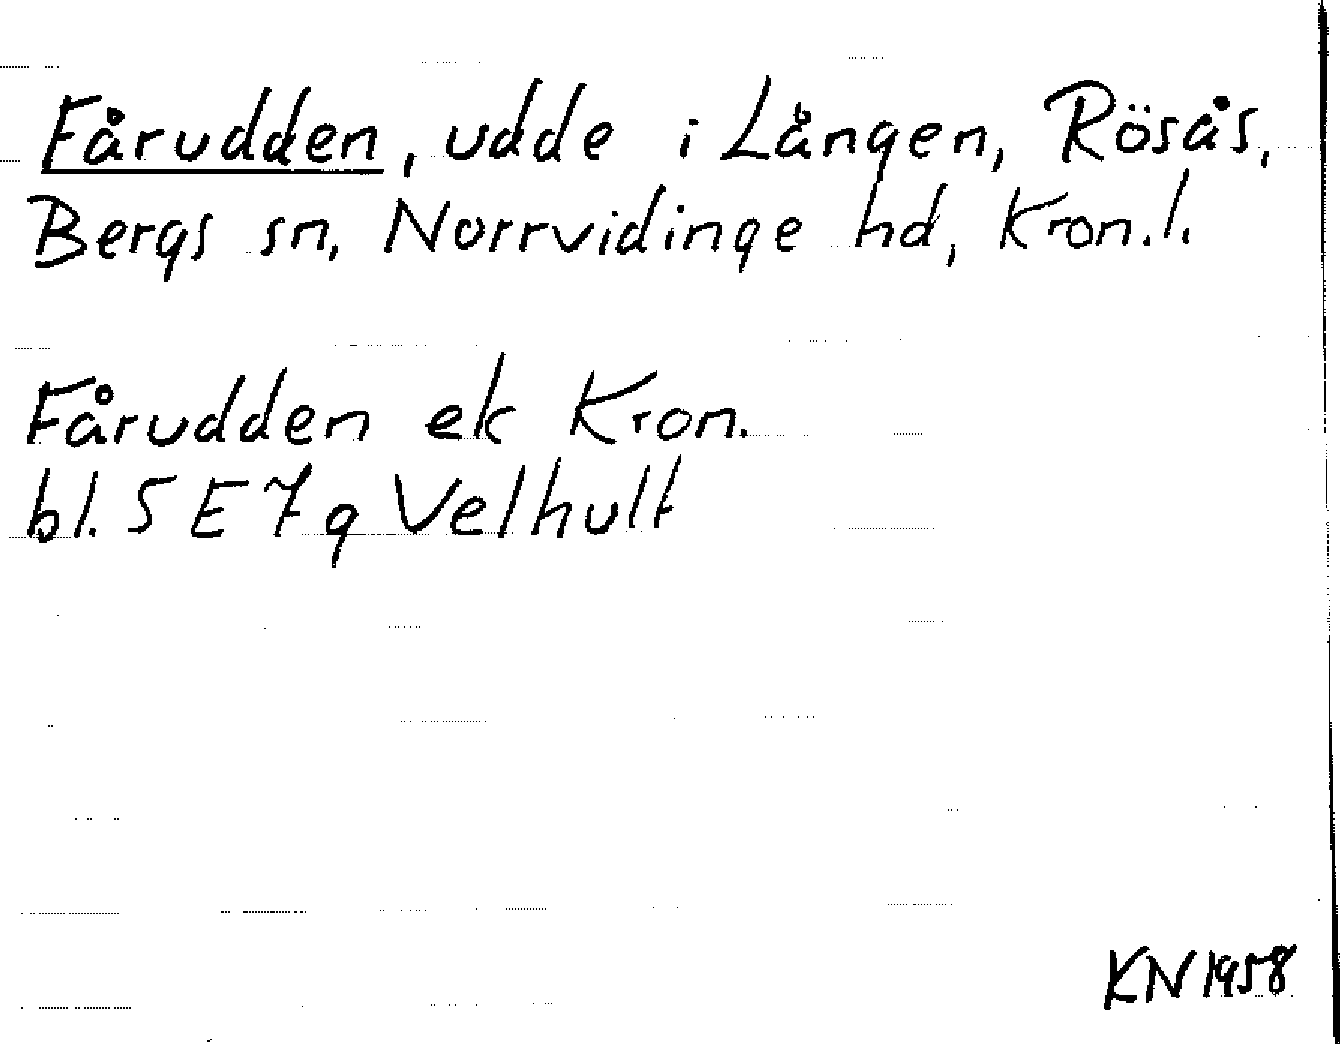 Fårudden, udde i Lången, Rösås,
Bergs sn, Norrvidinge hd, Kron.l.
Fårudden ek Kron.
bl. 5 E 7 g Velhult
KN 1958